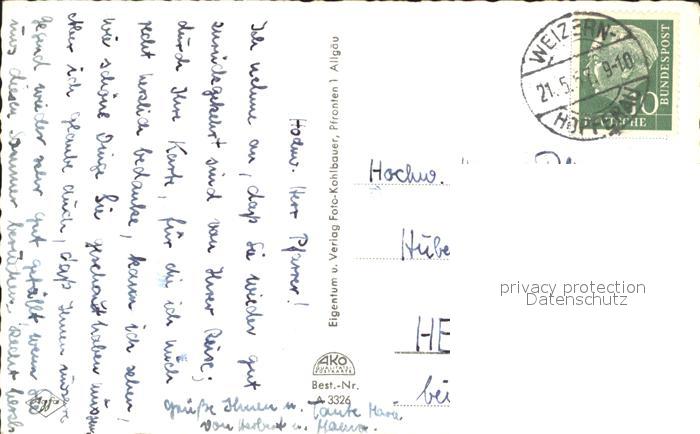 Hochw. Herr Pfarrer!
Ich nehme an, daß Sie wieder gut
zurückgekehrt sind von Ihrer Reise;
durch Ihre Karte, für die ich mich
recht herzlich bedanke, kann ich sehen,
wie schöne Dinge Sie geschaut haben
Aber ich glaube auch, daß Ihnen unsere
Gegend wieder sehr gut gefällt wenn Sie
uns diesen Sommer Recht herzl.
Grüße Ihnen u. Tante Marie
von Herbert u. Mama.
Eigentum u. Verlag Foto-Kohlbauer, Pfronten) Allgäu
AKO
QUALITÄTS
POSTKARTE
Best.-Nr.
A 3326
WEIZERN-
21.5.5
9-10
HOPFERAU
DEUTSCHE
BUNDESPOST
10
Hochw.
Hube
HE
bei
privacy protection
Datenschutz